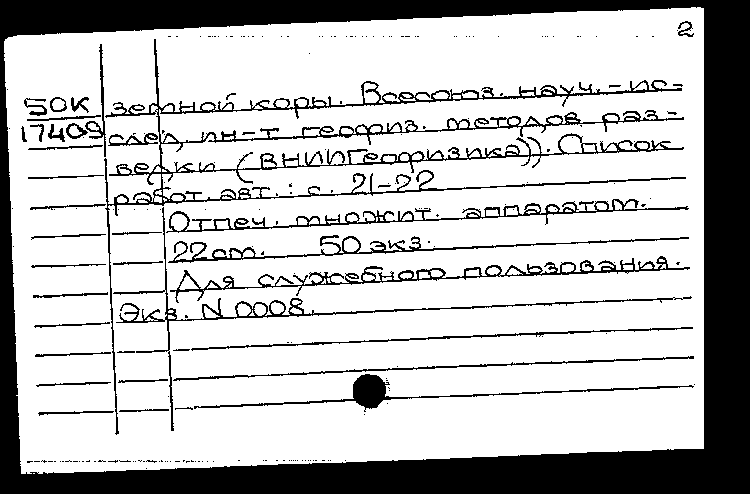 2
50К земной коры. Всесоюз. науч.-ис-
17409 след. ин-т геофиз. методов раз-
ведки (ВНИИГеофизика)). Список
работ. авт.: с. 21-22
Отпеч. множит. аппаратом.
22 см. 50 экз.
Для служебного пользования.
Экз. N 0008.